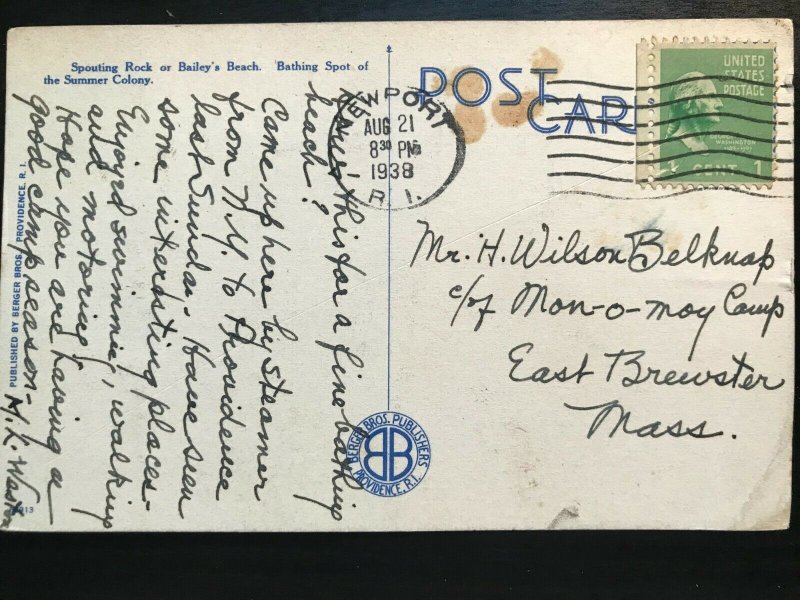 Spouting Rock or Bailey's Beach. Bathing Spot of
the Summer Colony.
POST
CARD
NEWPORT
AUG 21
8 30 PM
1938
R. I.
UNITED
STATES
POSTAGE
GEORGE
WASHINGTON
1 CENT 1
How's this for a fine bathing
beach?
Came up here by steamer
from N.Y. to Providence
last Sunday. Have seen
some interesting places-
Enjoyed swimming, walking
and motoring.
Hope you are having a
good camp season-
H. L.
Mr. H. Wilson Belknap
c/o Mon-o-moy Camp
East Brewster
Mass.
PUBLISHED BY BERGER BROS., PROVIDENCE, R. I.
BERGER BROS. PUBLISHERS
BB
PROVIDENCE, R.I.